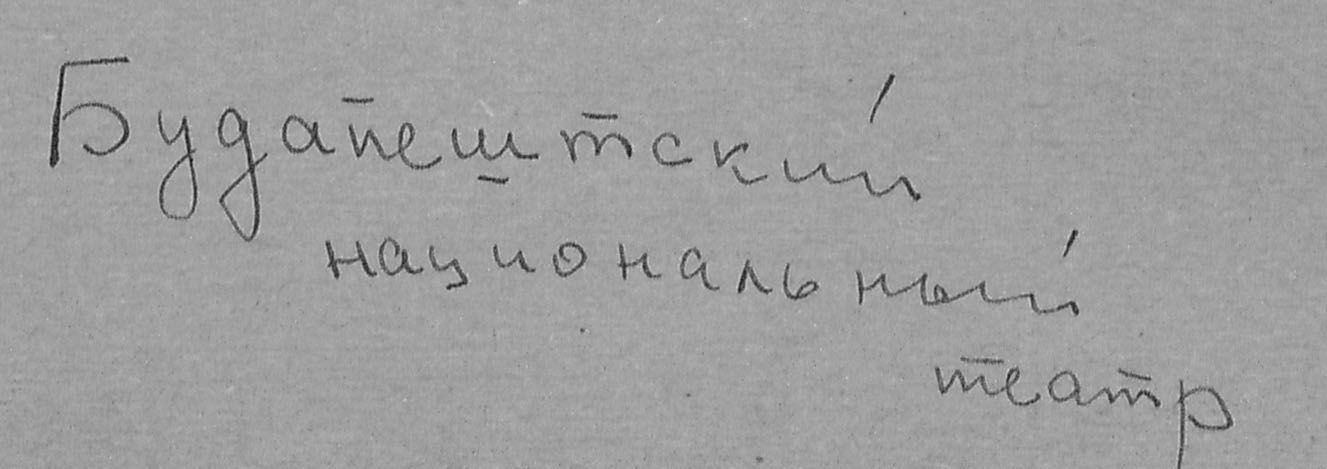 Будапештский
национальный
театр